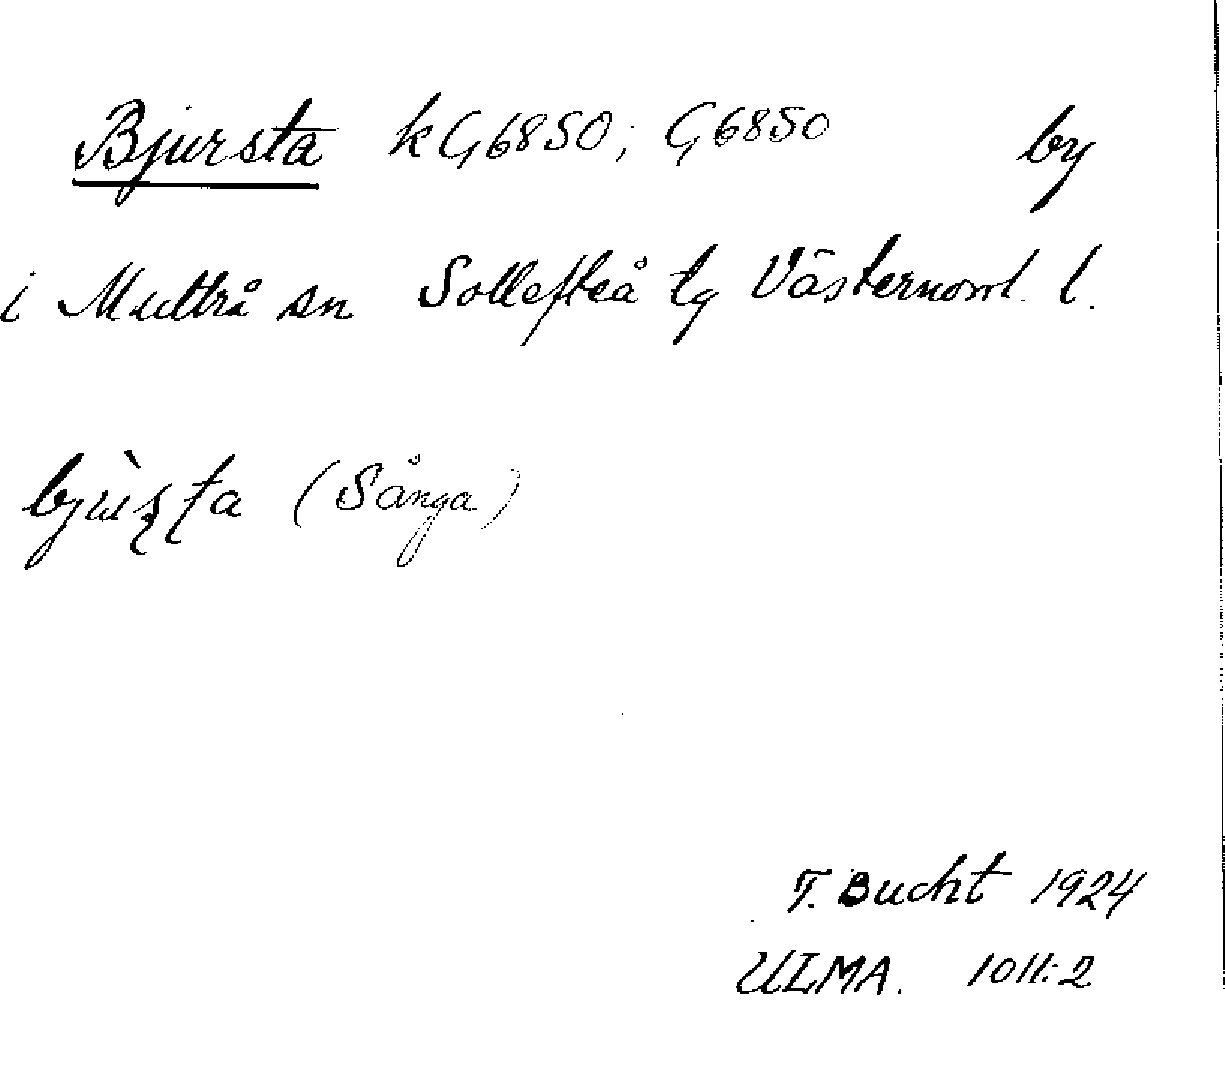 Bjursta kG6850; G6850 by
i Multrå sn Sollefteå tg Västernorrl. l.
(Sånga)
T. Bucht 1924
ULMA. 1011:2